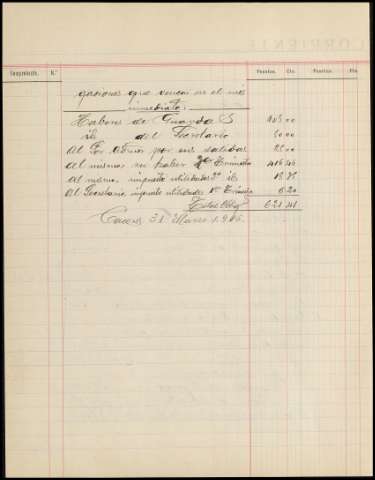 CORRIENTE
Comprobante. N.º Pesetas. Cts. Pesetas. Cts.
gaciones que vencen en el mes
inmediato:
Haberes de Guardas 105 00
id del Secretario 50 00
Al por sus salidas 25 00
Al mismo su haber Trimestre
Al mismo, impuesto utilidades id
Al Secretario, impuesto utilidades Trimestre 6.20
Total 621 41
Caceres 31 Marzo 1.906.